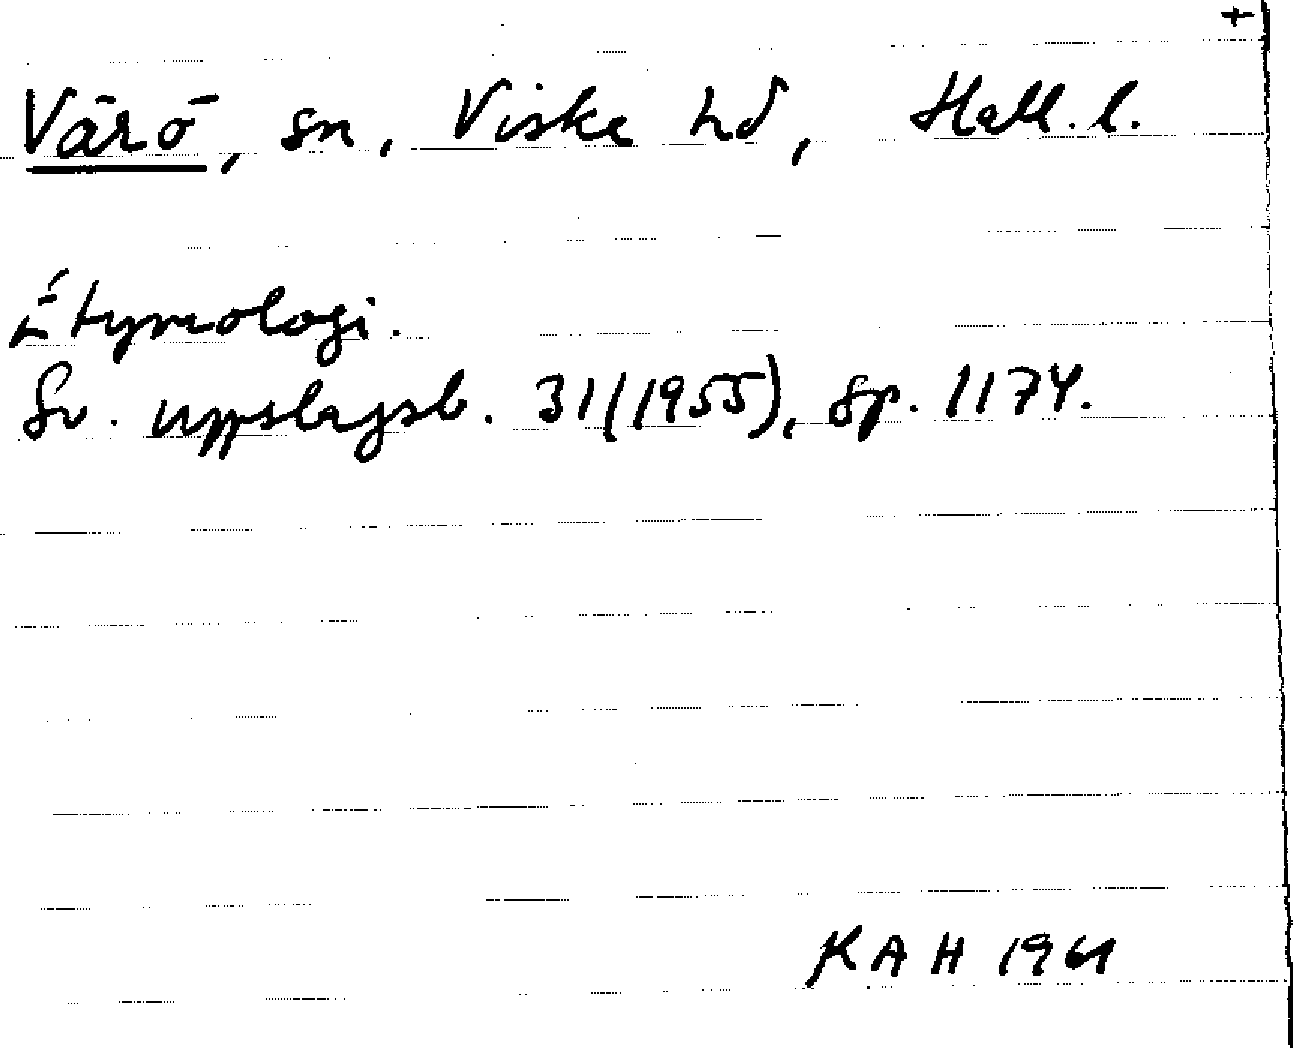 +
Värö, sn, Viske hd, Hall. l.
Etymologi.
Sv. uppslagsb. 31(1955), sp. 1174.
KAH 1961